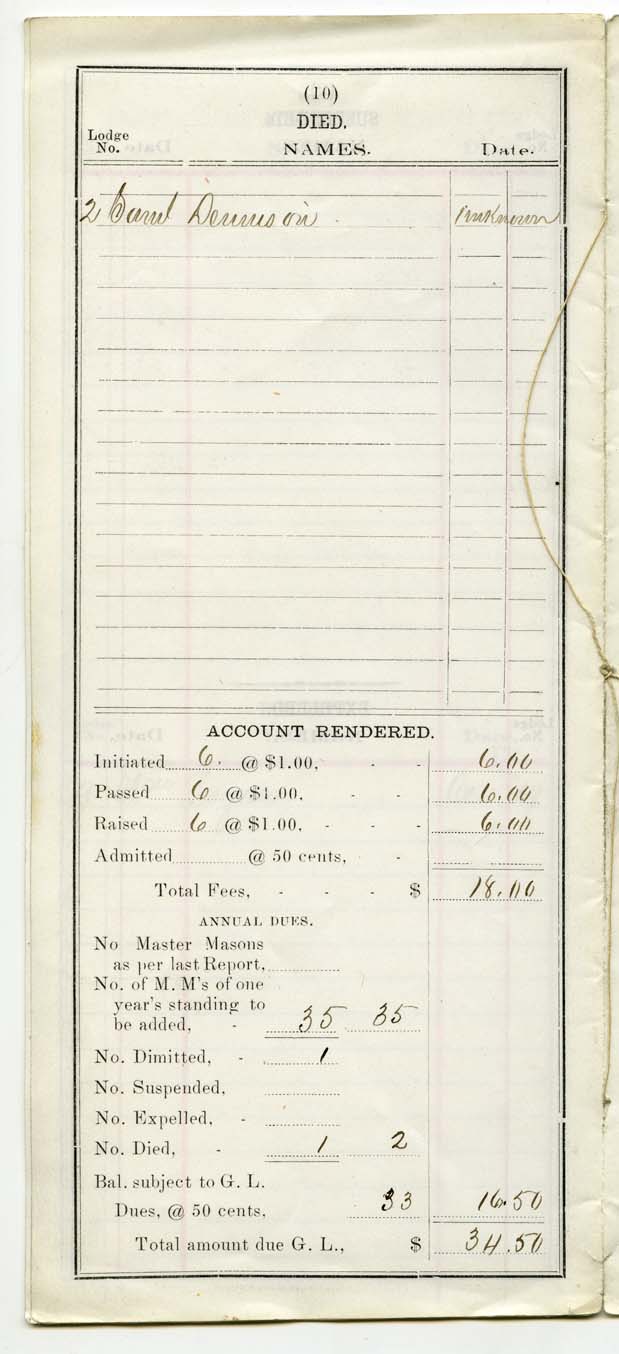 (10)
DIED.
Lodge No. NAMES. Date.
2 Saml Dennison unknown
ACCOUNT RENDERED.
Initiated 6. @ $1.00, - - 6.00
Passed 6 @ $1.00, - - 6.00
Raised 6 @ $1.00, - - - 6.00
Admitted @ 50 cents, -
Total Fees, - - - $ 18.00
ANNUAL DUES.
No Master Masons
as per last Report,
No. of M. M's of one
year's standing to
be added, - 35 35
No. Dimitted, - 1
No. Suspended,
No. Expelled, -
No. Died, - 1 2
Bal. subject to G. L.
Dues, @ 50 cents, 33 16.50
Total amount due G. L., $ 34.50